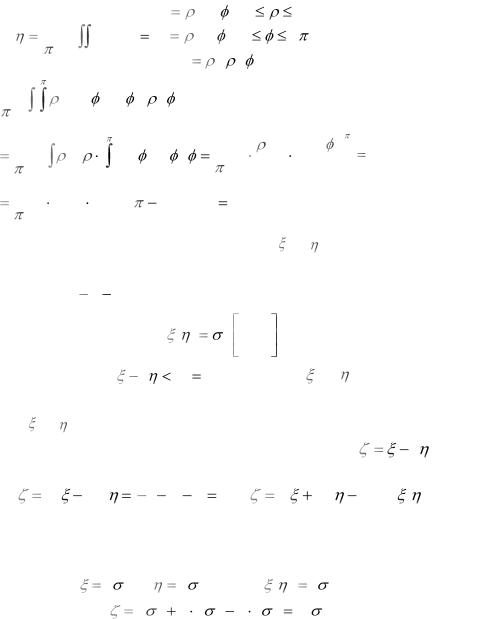 = ρ ϕ ≤ ρ ≤
η = π ∬ = = ρ ϕ ≤ ϕ ≤ π
= ρ ρ ϕ
π ∫ ∫ π ρ ϕ ϕ ρ ϕ
= π ∫ ρ ρ · ∫ π ϕ ϕ ϕ = π · ρ · ϕ π =
= π · · π − =
ξ η
− −
ξ η = σ [ ]
ξ − η < = ξ η
ξ η
ζ = ξ − η
ζ = ξ − η = − − − = ζ = ξ + η − ξ η
ξ = σ η = σ ξ η = σ
ζ = σ + · σ − · σ = σ